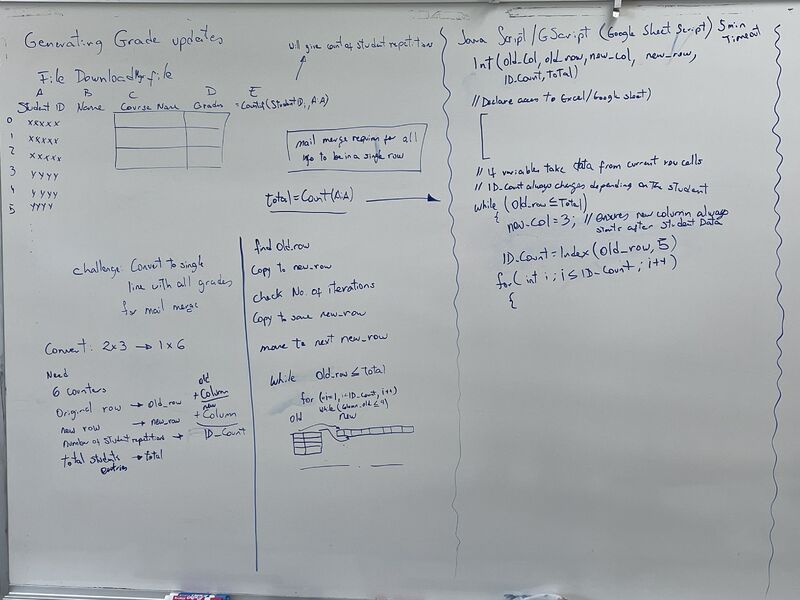 Generating Grade updates
File Download file
A B C D E
Student ID Name Course Name Grades =Countif(StudentID, A:A)
0 xxxxx
1 xxxxx
2 xxxxx
3 yyyy
4 yyyy
5 yyyy
will give count of student repetitions
mail merge requires for all
to be in a single row
total = Count(A:A)
challenge: Convert to single
line with all grades
for mail merge
Convert: 2x3 → 1x6
Need
6 counters
Original row → old_row
new row → new_row
number of student repetitions → ID_Count
total students → total
entries
old
+ Column
new
+ Column
find old_row
Copy to new_row
check No. of iterations
Copy to same new_row
move to next new_row
while old_row ≤ total
for (i=1, i=ID_count, i++)
while (column_old ≤ 4)
old new
Java Script/GScript (Google Sheet Script) 5 min
Timeout
Int (old_Col, old_row, new_col, new_row,
ID_count, total)
// Declare access to Excel/Google sheet)
// If variables take data from current row cells
// ID_count always changes depending on the student
while (old_row ≤ total)
{ new_col = 3; // ensures new column always
starts after student Data
ID_Count = Index (old_row, 5)
for (int i; i ≤ ID_Count; i++)
{